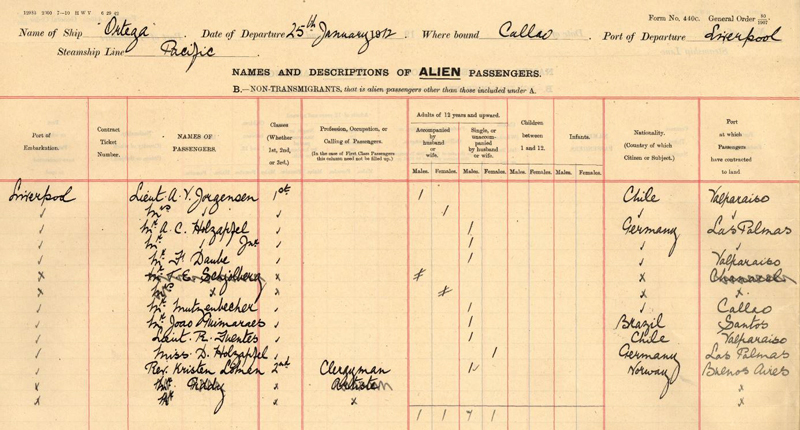 12031 2360 7-10 H W V 6 29 42
Form No. 440c. General Order 80/1907
Name of Ship "Ortega" Date of Departure 25th January 1912 Where bound Callao Port of Departure Liverpool
Steamship Line Pacific
NAMES AND DESCRIPTIONS OF ALIEN PASSENGERS.
B.—NON-TRANSMIGRANTS, that is alien passengers other than those included under A.
Port of Embarkation. Contract Ticket Number. NAMES OF PASSENGERS. Classes (Whether 1st, 2nd, or 3rd.) Profession, Occupation, or Calling of Passengers. (In the case of First Class Passengers this column need not be filled up.) Adults of 12 years and upward. Accompanied by husband or wife. Males. Females. Single, or unaccompanied by husband or wife. Males. Females. Children between 1 and 12. Males. Females. Infants. Males. Females. Nationality. (Country of which Citizen or Subject.) Port at which Passengers have contracted to land
Liverpool Lieut A. V. Jorgensen 1st 1 Chile Valparaiso
✓ Mrs ✓ ✓ 1 ✓ ✓
✓ Mr A. C. Holzapfel ✓ 1 Germany Las Palmas
✓ Mr ✓ Jnr ✓ 1 ✓ ✓
✓ Mr F. Daube ✓ 1 ✓ Valparaiso
x Mr T. E. Schjolberg x x
x Mrs x x x x
✓ Mr Mutzenbecher ✓ 1 ✓ Callao
✓ Mr Joao Guimaraes ✓ 1 Brazil Santos
✓ Lieut. R. Fuentes ✓ 1 Chile Valparaiso
✓ Miss D. Holzapfel ✓ 1 Germany Las Palmas
✓ Rev. Kristen Loman 2nd Clergyman 1 Norway Buenos Aires
x Mr x x x
x x x x x
1 1 7 1